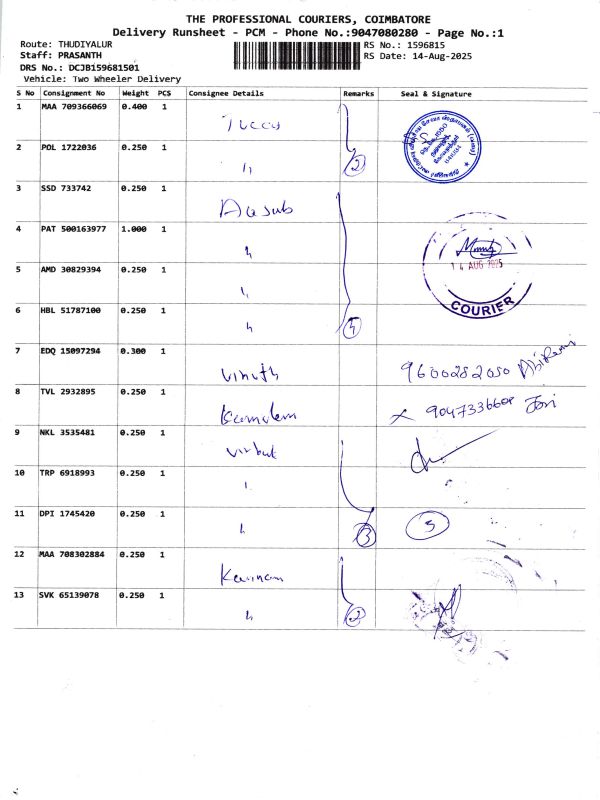 THE PROFESSIONAL COURIERS, COIMBATORE
Delivery Runsheet - PCM - Phone No.:9047080280 - Page No.:1
Route: THUDIYALUR RS No.: 1596815
Staff: PRASANTH RS Date: 14-Aug-2025
DRS No.: DCJB159681501
Vehicle: Two Wheeler Delivery
S No Consignment No Weight PCS Consignee Details Remarks Seal & Signature
1 MAA 709366069 0.400 1
2 POL 1722036 0.250 1 2
3 SSD 733742 0.250 1
4 PAT 500163977 1.000 1
5 AMD 30829394 0.250 1 14 AUG 2025
6 HBL 51787100 0.250 1 4 COURIER
7 EDQ 15097294 0.300 1 9600282050
8 TVL 2932895 0.250 1 9047336608
9 NKL 3535481 0.250 1
10 TRP 6918993 0.250 1
11 DPI 1745420 0.250 1 3
12 MAA 708302884 0.250 1
13 SVK 65139078 0.250 1 2